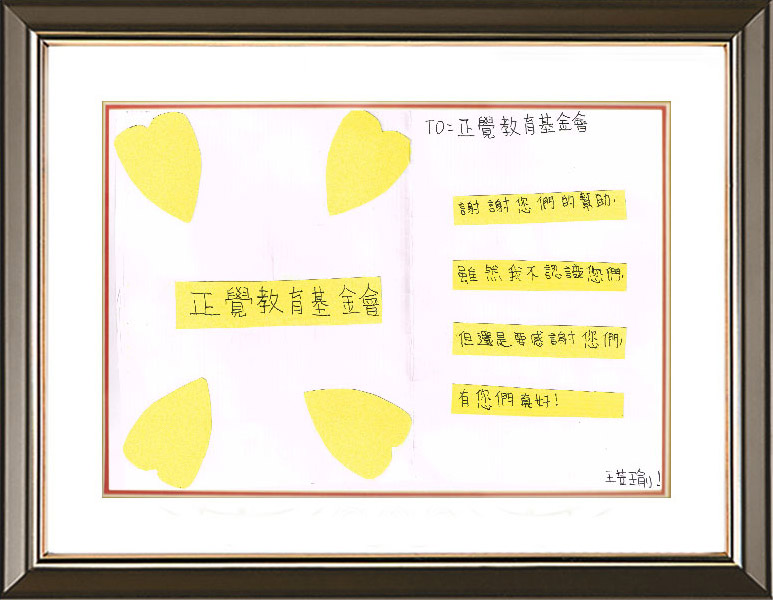 正覺教育基金會
TO=正覺教育基金會
謝謝您們的幫助,
雖然我不認識您們,
但還是要感謝您們,
有您們真好!